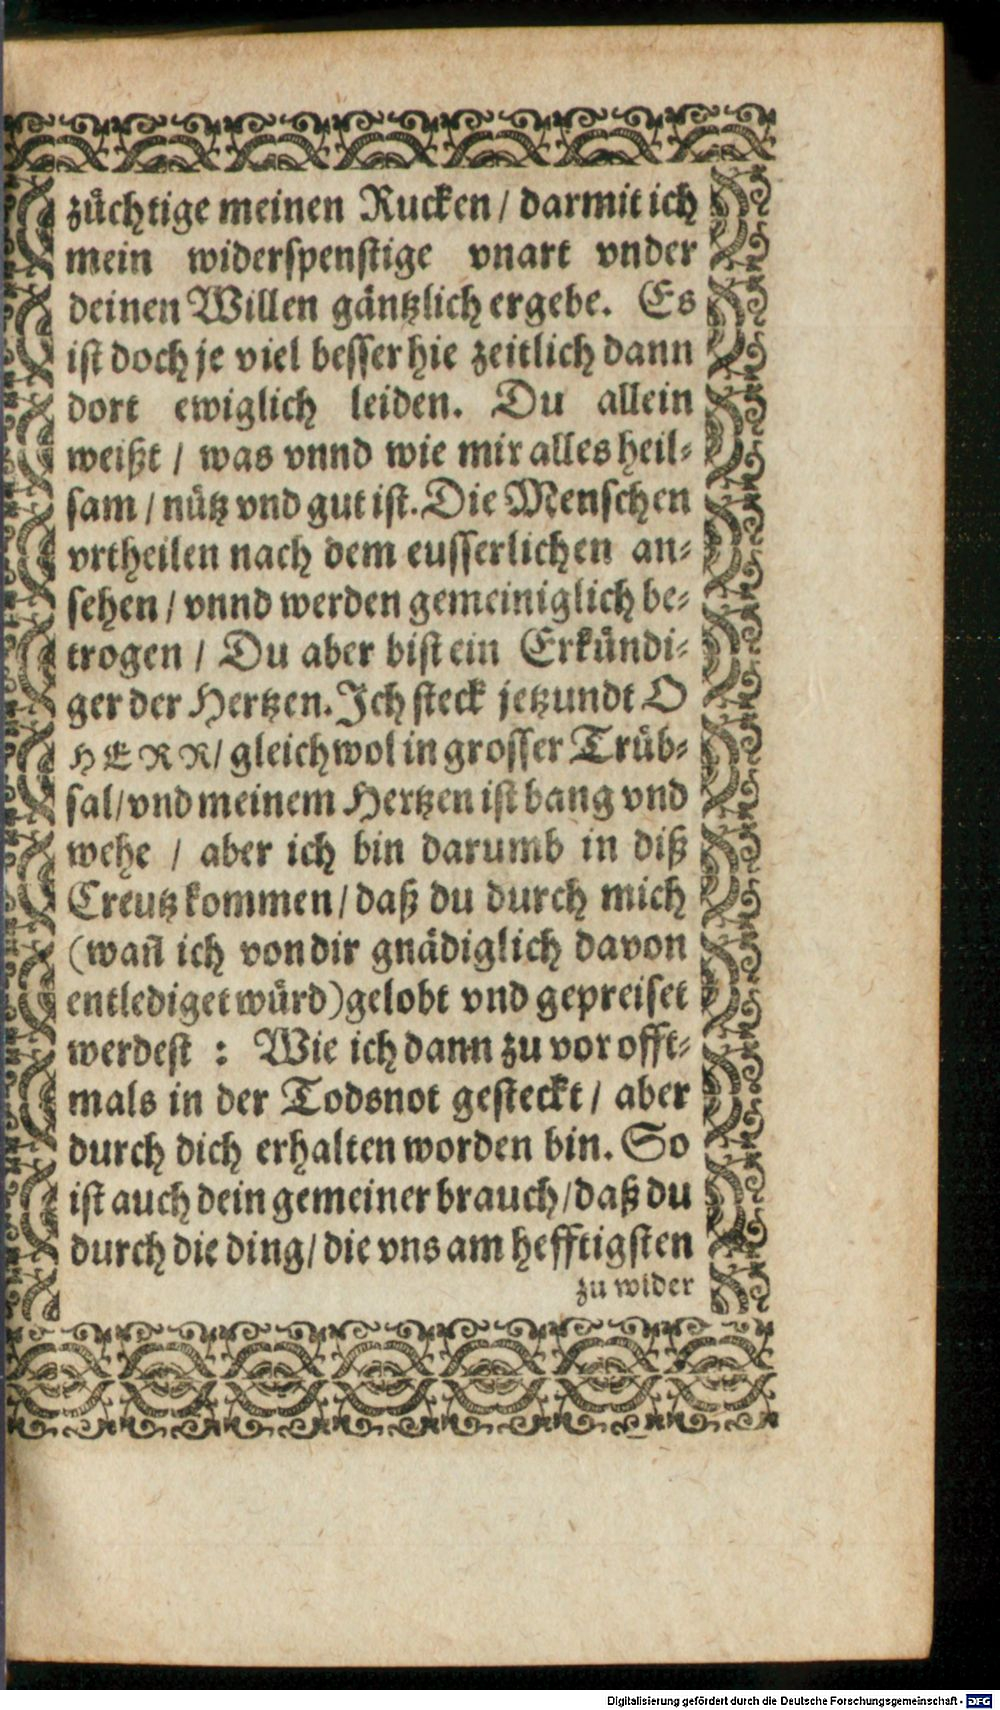 züchtige meinen Rucken / darmit ich
mein widerspenstige vnart vnder
deinen Willen gäntzlich ergebe. Es
ist doch je viel besser hie zeitlich dann
dort ewiglich leiden. Du allein
weißt / was vnnd wie mir alles heil-
sam / nütz vnd gut ist. Die Menschen
vrtheilen nach dem eusserlichen an-
sehen / vnnd werden gemeiniglich be-
trogen / Du aber bist ein Erkündi-
ger der Hertzen. Ich steck jetzundt O
HERR / gleichwol in grosser Trüb-
sal / vnd meinem Hertzen ist bang vnd
wehe / aber ich bin darumb in diß
Creutz kommen / daß du durch mich
(wañ ich von dir gnädiglich davon
entlediget würd) gelobt vnd gepreiset
werdest : Wie ich dann zu vor offt-
mals in der Todsnot gesteckt / aber
durch dich erhalten worden bin. So
ist auch dein gemeiner brauch / daß du
durch die ding / die vns am hefftigsten
zu wider
Digitalisierung gefördert durch die Deutsche Forschungsgemeinschaft - DFG